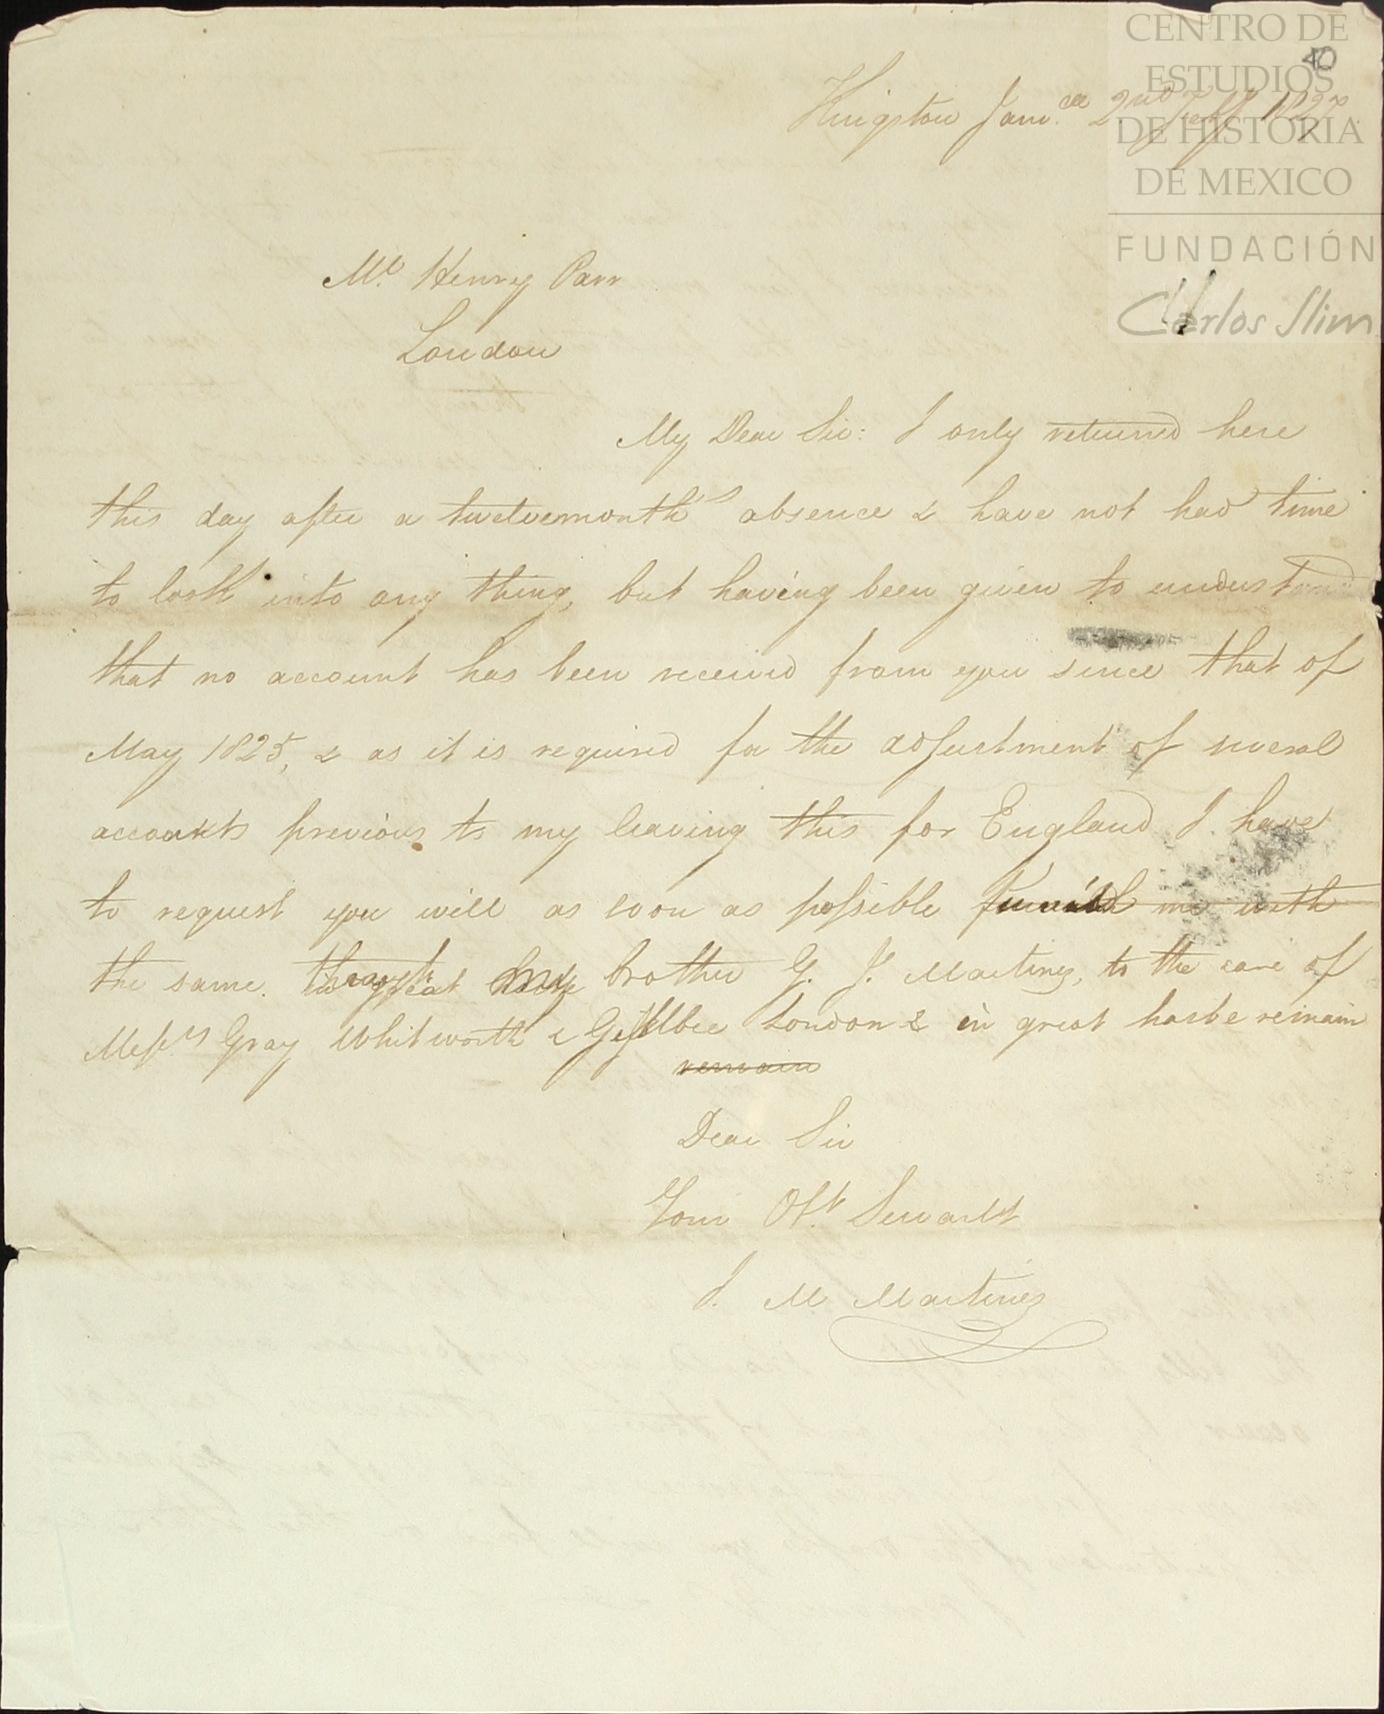 CENTRO DE
ESTUDIOS
DE HISTORIA
DE MEXICO
FUNDACIÓN
Carlos Slim
40
Kingston Jam.ca 2nd 1827
Mr. Henry Parr
London
My Dear Sir: I only returned here
this day after a twelvemonth's absence & have not had time
to look into any thing, but having been given to understand
that no account has been received from you since that of
May 1825, & as it is required for the adjustment of several
accounts previous to my leaving this for England I have
to request you will as soon as possible furnish me with
the same. through my brother G. J. Martinez, to the care of
Messrs Gray Whitworth & London & in great haste remain
remain
Dear Sir
Your Obt. Servant
J. M. Martinez